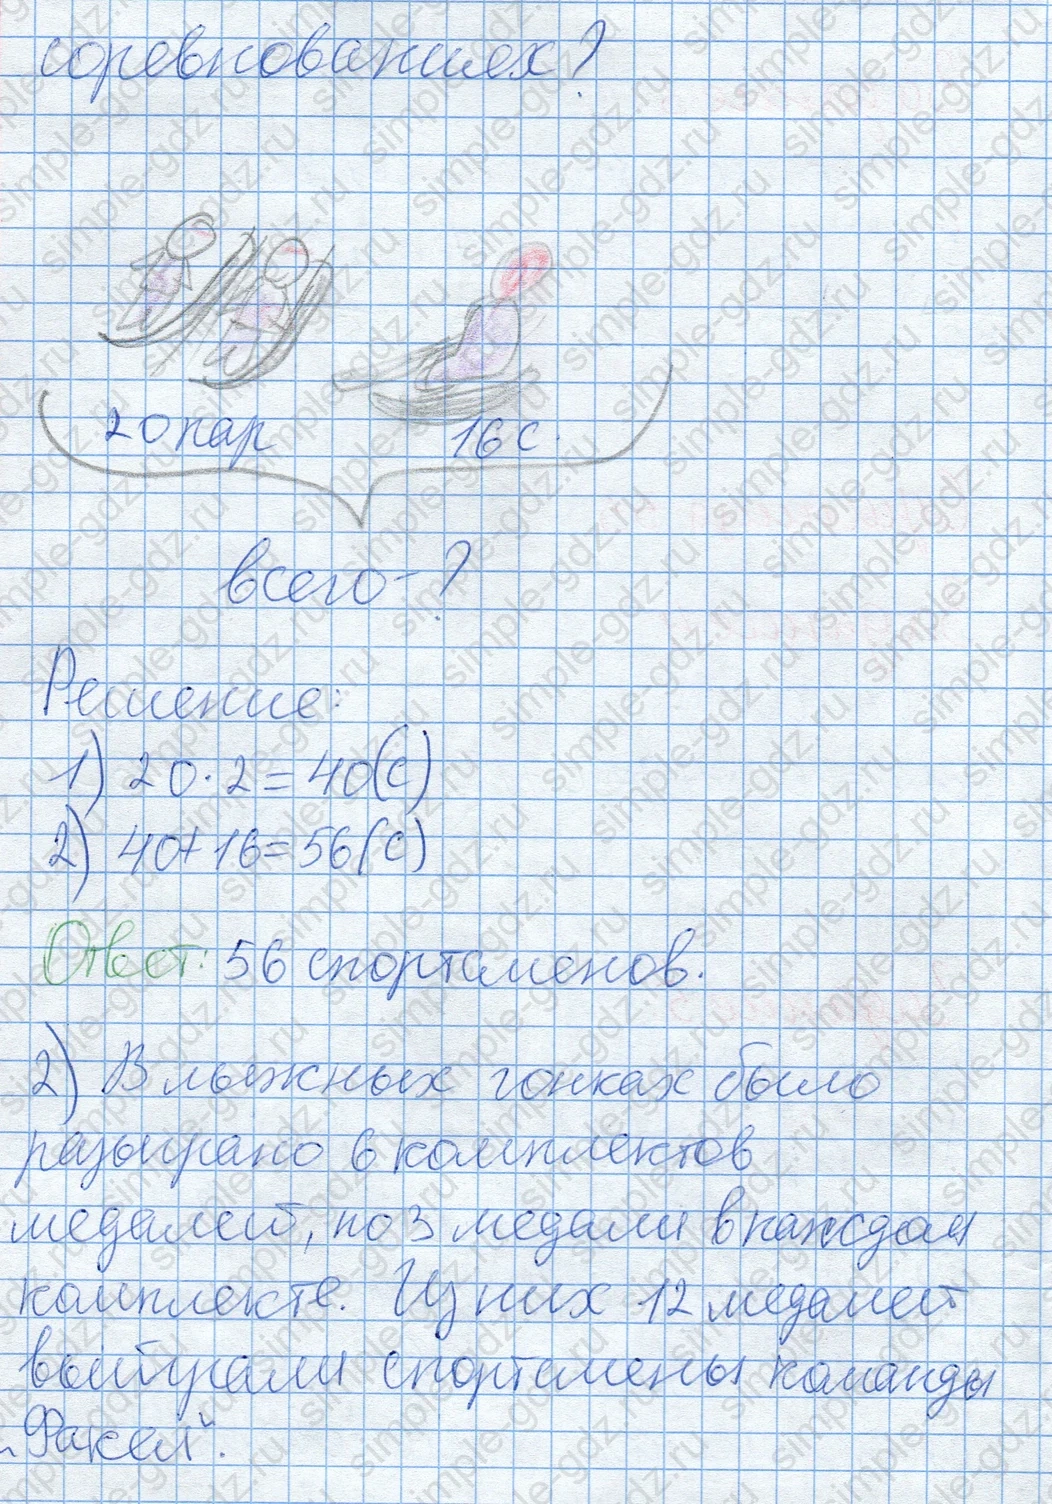 соревнованиях?
20 пар 16 с.
всего - ?
Решение:
1) 20 · 2 = 40 (с)
2) 40 + 16 = 56 (с)
Ответ: 56 спортсменов.
2) В лыжных гонках было
разыграно 6 комплектов
медалей, по 3 медали в каждом
комплекте. Из них 12 медалей
выиграли спортсмены команды
„Факел".
simple-gdz.ru